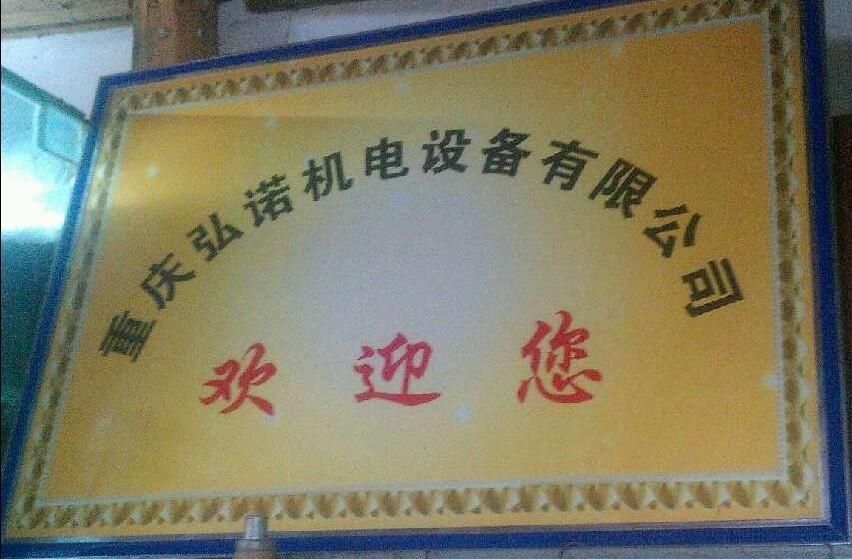 重庆弘诺机电设备有限公司
欢迎您